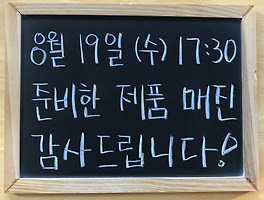 8월 19일 (수) 17:30
준비한 제품 매진
감사드립니다!